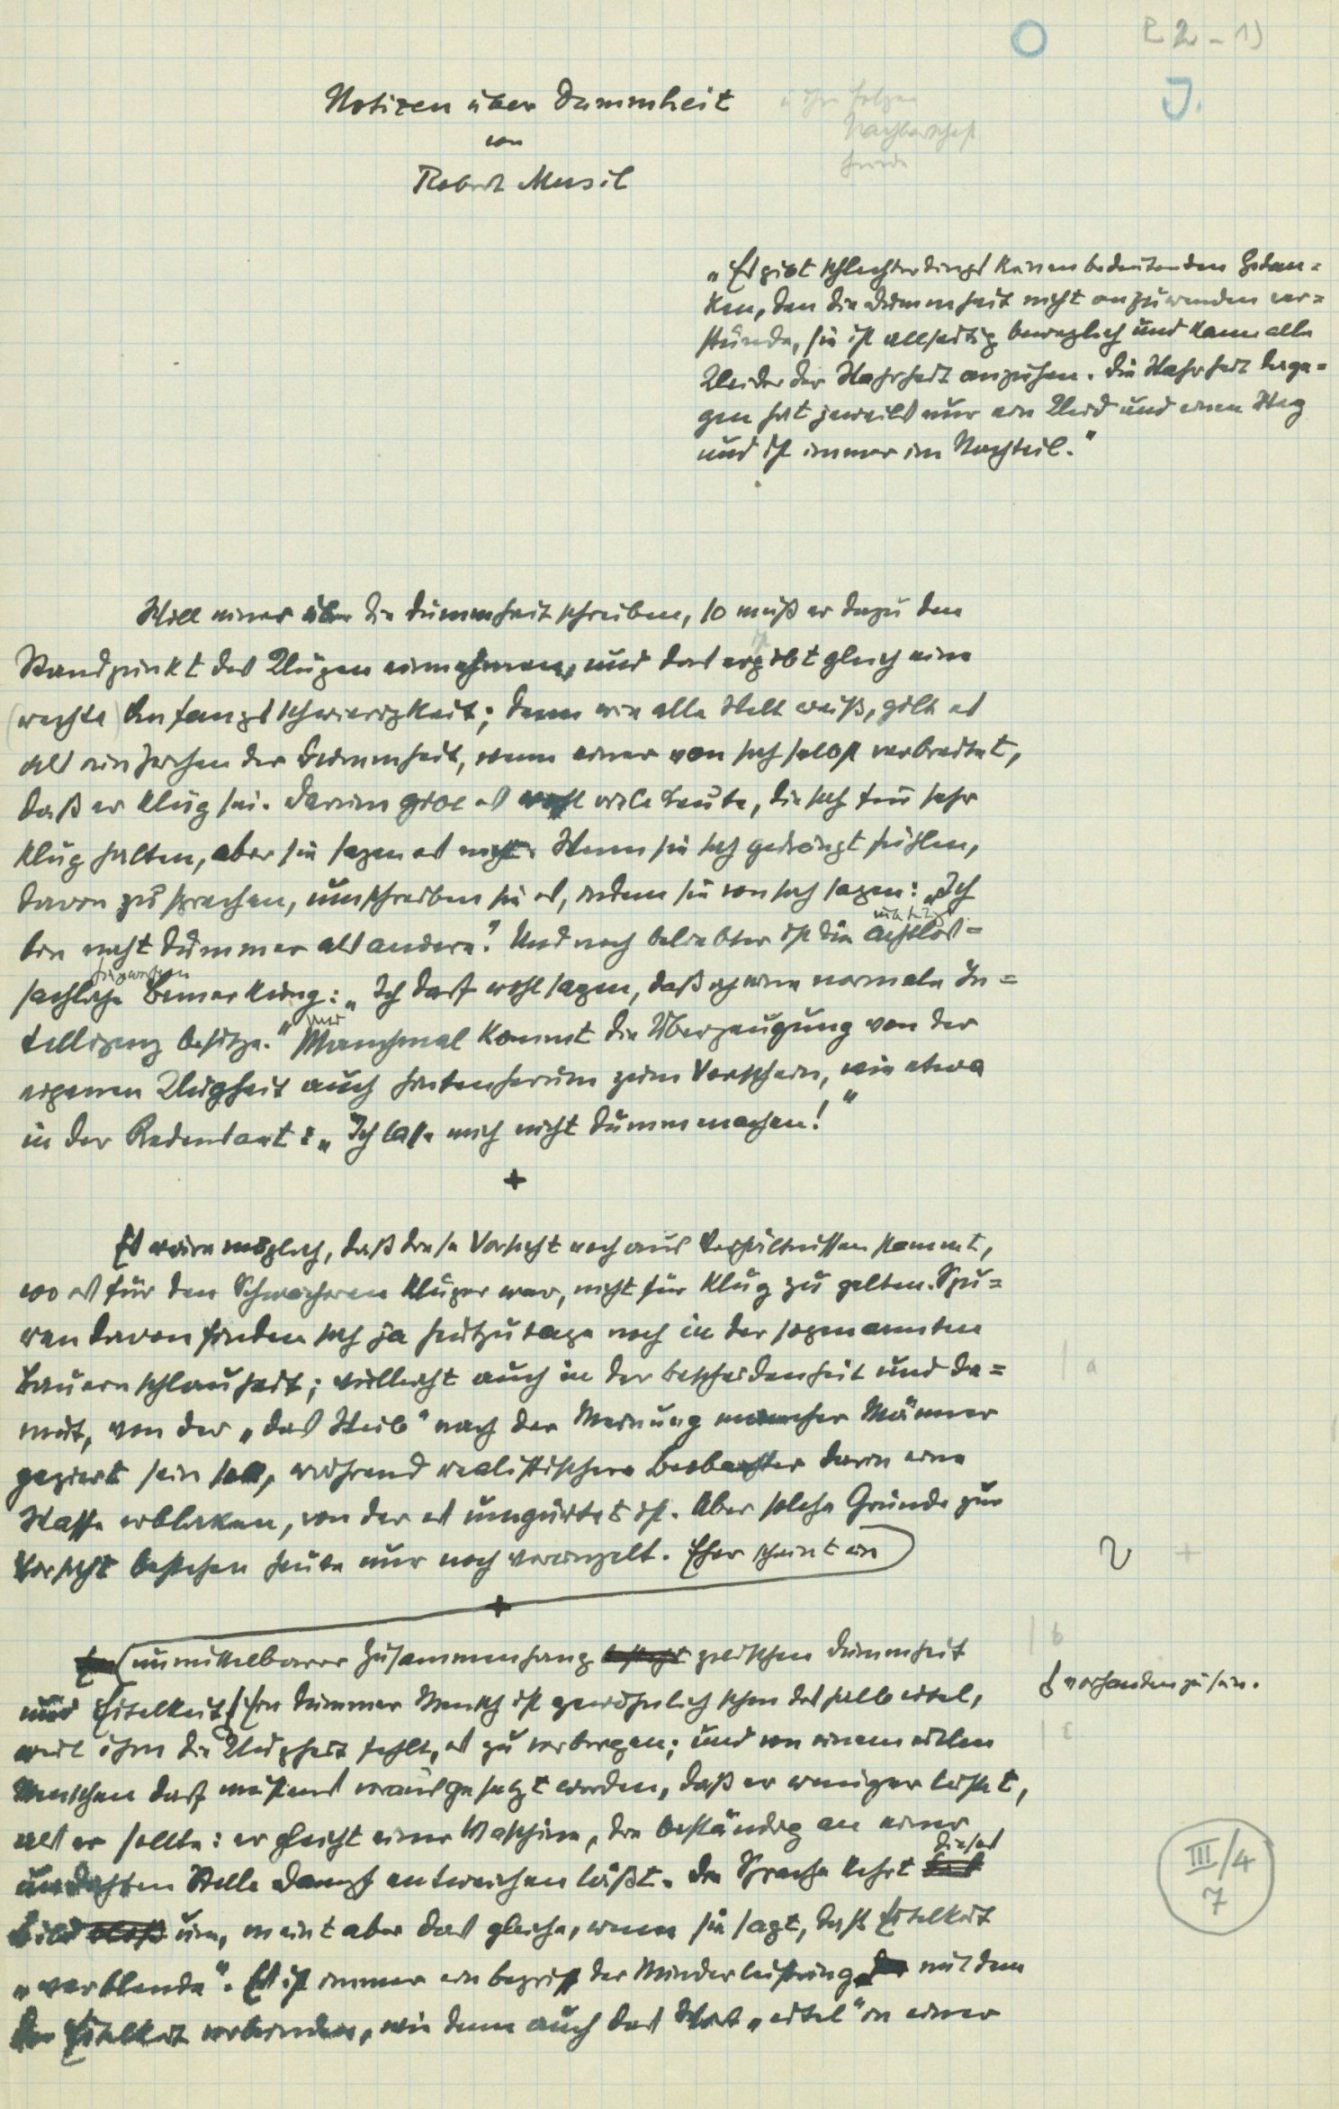 I.
Notizen über Dummheit
von
Robert Musil
„Es gibt schlechterdings keinen bedeutenden Gedan=
ken, den die Dummheit nicht anzuwenden ver=
stünde, sie ist allseitig beweglich und kann alle
Kleider der Wahrheit anziehen. Die Wahrheit dage=
gen hat jeweils nur ein Kleid und einen Weg
und ist immer im Nachteil."
Will einer über die Dummheit schreiben, so muß er dazu den
Standpunkt des Klugen einnehmen, und das ergibt gleich eine
(rechte) Anfangsschwierigkeit; denn wie alle Welt weiß, gilt es
als ein Zeichen der Dummheit, wenn einer von sich selbst verbreitet,
daß er klug sei. Darum gibt es wohl viele Leute, die sich für sehr
klug halten, aber sie sagen es nicht. Wenn sie sich gedrängt fühlen,
davon zu sprechen, umschreiben sie es, indem sie von sich sagen: „Ich
bin nicht dümmer als andere". Und noch beliebter ist die achtlos=
sachliche Bemerkung: „Ich darf wohl sagen, daß ich eine normale In=
telligenz besitze." Manchmal kommt die Überzeugung von der
eigenen Klugheit auch hintenherum zum Vorschein, wie etwa
in der Redensart: „Ich lasse mich nicht dumm machen!"
+
Es wäre möglich, daß diese Vorsicht noch aus Verhältnissen kommt,
wo es für den Schwächeren klüger war, nicht für klug zu gelten. Spu=
ren davon finden sich ja heutzutage noch in der sogenannten
Bauernschlauheit; vielleicht auch in der Bescheidenheit und De=
a
mut, von der „das Weib" nach der Meinung mancher Männer
geziert sein soll, während realistischere Beobachter darin eine
Waffe erblicken, von der es umgürtet ist. Aber solche Gründe zur
Vorsicht bestehen heute nur noch vereinzelt. Eher scheint ein
+
+
unmittelbarer Zusammenhang besteht zwischen Dummheit
b
und Eitelkeit. Ein dummer Mensch ist gewöhnlich schon deshalb eitel,
vorhanden zu sein.
weil ihm die Klugheit fehlt, es zu verbergen; und von einem eitlen
c
Menschen darf meistens vorausgesetzt werden, daß er weniger leistet,
als er sollte: er gleicht einer Maschine, die beständig an einer
undichten Stelle Dampf entweichen läßt. Die Sprache kehrt dieses
Bild um, meint aber das gleiche, wenn sie sagt, daß Eitelkeit
„verblende". Es ist immer ein Begriff der Minderleistung mit dem
der Eitelkeit verbunden, wie denn auch das Wort „eitel" in einer
III/4
7